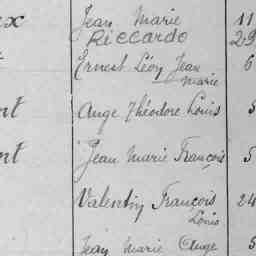 ex Jean Marie 11
Riccardo 29
Ernest Léon Jean 6
Marie
nt Ange Théodore Louis 5
nt Jean Marie François 5
Valentin François 24
Louis
Jean Marie Ange 5